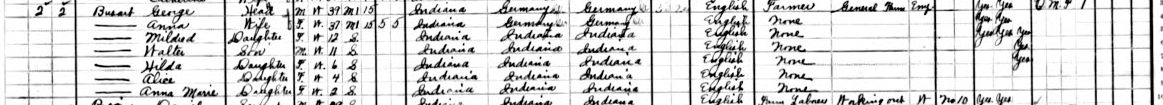 2 2 Busart George Head M W 39 M1 15 Indiana Germany Germany English Farmer General Farm Emp Yes Yes O M F 1
—— Anna Wife F W 37 M1 15 5 5 Indiana Germany Germany English None Yes Yes
—— Mildred Daughter F W 12 S Indiana Indiana Indiana English None Yes Yes Yes
—— Walter Son M W 11 S Indiana Indiana Indiana English None Yes
—— Hilda Daughter F W 6 S Indiana Indiana Indiana English None Yes
—— Alice Daughter F W 4 S Indiana Indiana Indiana English None
—— Anna Marie Daughter F W 2 S Indiana Indiana Indiana English None
Indiana Indiana Indiana English Farm Laborer Working out W No 10 Yes Yes